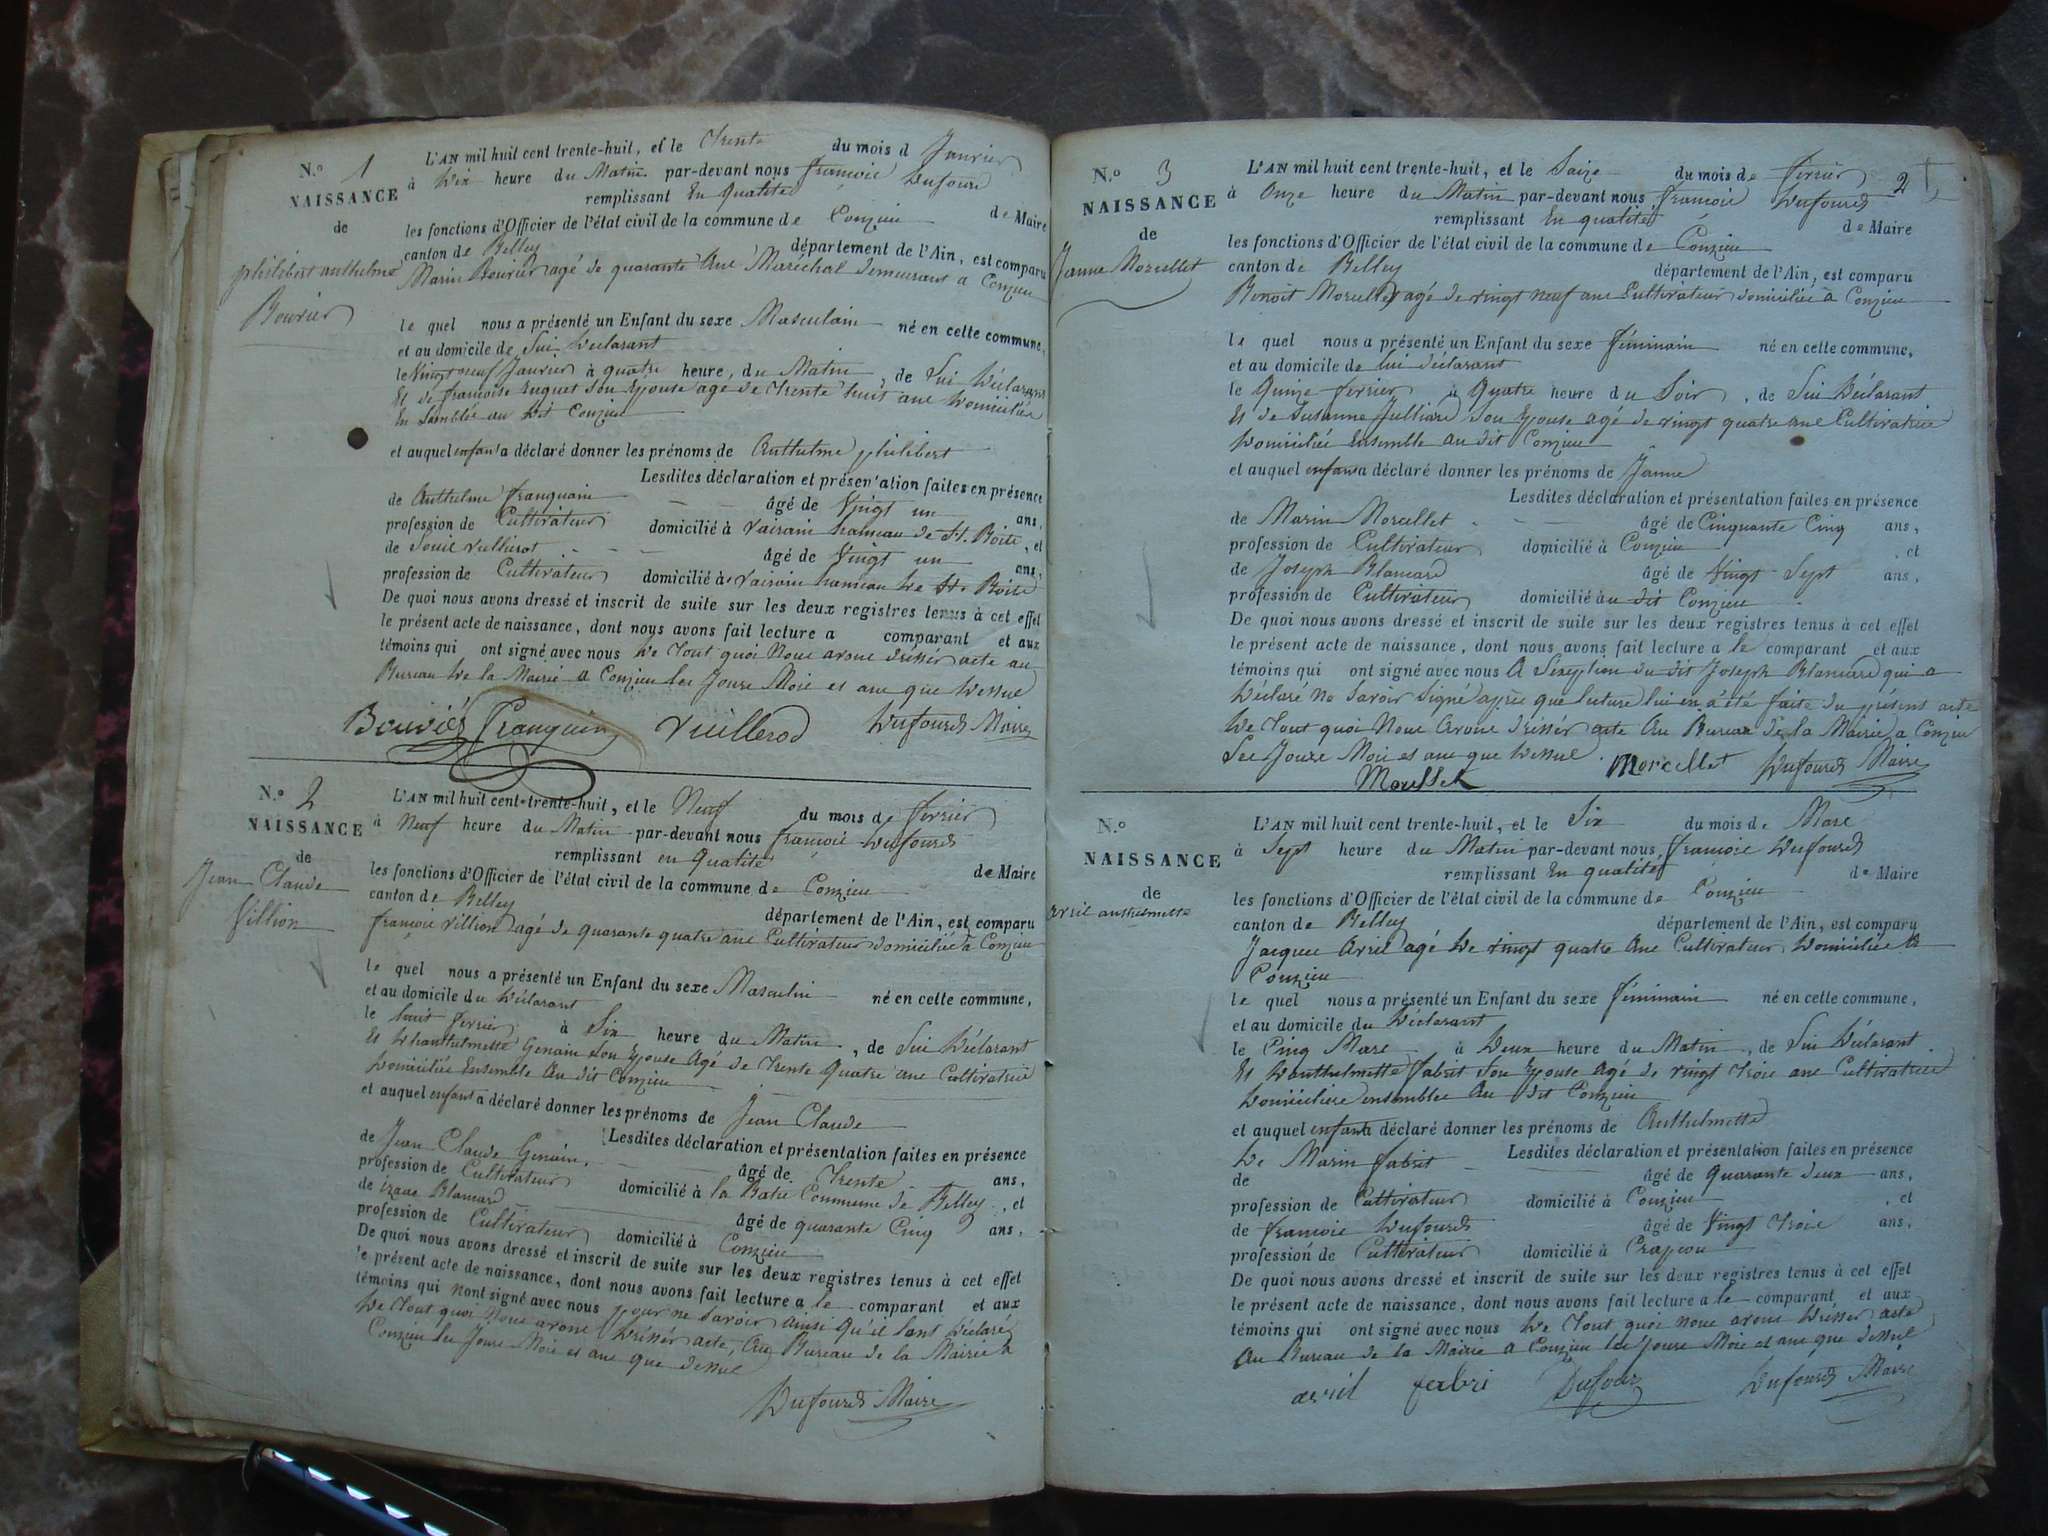 N.° 1
NAISSANCE
de
philibert anthelme
Bouvier
L'AN mil huit cent trente-huit, et le Trente du mois d Janvier
à Dix heure du Matin par-devant nous françois Dufourd
remplissant En qualité de Maire
les fonctions d'Officier de l'état civil de la commune de Conzieu
canton de Belley département de l'Ain, est comparu
Marin Bouvier agé de quarante Ans Maréchal demeurant a Conzieu
le quel nous a présenté un Enfant du sexe Masculain né en cette commune,
et au domicile de Lui Déclarant
le Vingt neuf Janvier à quatre heure, du Matin, de Lui Déclarant
Et de francoise son Epouse agé de Trente huit ans Domiciliée
En Semble au dit Conzieu
et auquel enfant a déclaré donner les prénoms de Anthelme philibert
Lesdites déclaration et présentation faites en présence
de Anthelme franquain âgé de Vingt un ans,
profession de Cultivateur domicilié à hameau de St. Boite, et
de âgé de Vingt un ans,
profession de Cultivateur domicilié à hameau De St. Boite
De quoi nous avons dressé et inscrit de suite sur les deux registres tenus à cet effet
le présent acte de naissance, dont nous avons fait lecture a comparant et aux
témoins qui ont signé avec nous De Tout quoi Nous avons dréssér acte au
Bureau De la Mairie a Conzieu les Jours Mois et ans que Dessus
Bouvier Franquin Vuillerod Dufourd Maire
N.° 2
NAISSANCE
de
Jean Claude
Villion
L'AN mil huit cent trente-huit, et le Neuf du mois de fevrier
à Neuf heure du Matin par-devant nous françois Dufourd
remplissant en Qualité de Maire
les fonctions d'Officier de l'état civil de la commune de Conzieu
canton de Belley département de l'Ain, est comparu
françois Villion agé de quarante quatre ans Cultivateur domiciliée à Conzieu
le quel nous a présenté un Enfant du sexe Masculin né en cette commune,
et au domicile du Déclarant
le huit fevrier à Six heure du Matin, de Lui Déclarant
Et Dhanthelmette Genain son Epouse Agé de Trente Quatre ans Cultivatrice
Domiciliée Ensemble Au dit Conzieu
et auquel enfant a déclaré donner les prénoms de Jean Claude
Lesdites déclaration et présentation faites en présence
de Jean Claude Genain, âgé de Trente ans,
profession de Cultivateur domicilié à la Commune de Belley, et
de Blancard âgé de quarante Cinq ans,
profession de Cultivateur domicilié à Conzieu
De quoi nous avons dressé et inscrit de suite sur les deux registres tenus à cet effet
le présent acte de naissance, dont nous avons fait lecture a le comparant et aux
témoins qui nont signé avec nous pour ne Savoir ainsi qu'il Lont Déclaré
De Tout quoi Nous avons Drésser acte, Au Bureau de la Mairie a
Conzieu les Jours Mois et ans que dessus
Dufourd Maire
N.° 3
NAISSANCE
de
Janne Morcellet
2
L'AN mil huit cent trente-huit, et le Saize du mois de fevrier
à Onze heure du Matin par-devant nous françois Dufourd
remplissant En qualité de Maire
les fonctions d'Officier de l'état civil de la commune de Conzieu
canton de Belley département de l'Ain, est comparu
Benoit Morcellet agé de vingt neuf ans Cultivateur domiciliée à Conzieu
le quel nous a présenté un Enfant du sexe féminain né en cette commune,
et au domicile de lui déclarant
le Quinze fevrier à Quatre heure du Soir, de Lui Déclarant
Et de Susanne Julliand son Epouse agé de vingt quatre ans Cultivatrice
Domiciliée Ensemble au dit Conzieu
et auquel enfant a déclaré donner les prénoms de Janne
Lesdites déclaration et présentation faites en présence
de Marin Morcellet âgé de Cinquante Cinq ans,
profession de Cultivateur domicilié à Conzieu, et
de Joseph Blancard âgé de Vingt Sept ans,
profession de Cultivateur domicilié au dit Conzieu
De quoi nous avons dressé et inscrit de suite sur les deux registres tenus à cet effet
le présent acte de naissance, dont nous avons fait lecture a le comparant et aux
témoins qui ont signé avec nous A Lexeption du dit Joseph Blancard qui a
Déclaré ne Savoir Signé après que luture lui en a été faite du présent acte
De Tout quoi Nous Avons Drésser acte Au Bureau De la Mairie a Conzieu
Les Jours Mois et ans que Dessus
Morcellet Dufourd Maire
N.°
NAISSANCE
de
avril anthelmette
L'AN mil huit cent trente-huit, et le Six du mois de Mars
à Sept heure du Matin par-devant nous françois Dufourd
remplissant En qualité de Maire
les fonctions d'Officier de l'état civil de la commune de Conzieu
canton de Belley département de l'Ain, est comparu
Jacques Avril agé De vingt quatre Ans Cultivateur Domiciliée A
Conzieu
le quel nous a présenté un Enfant du sexe féminain né en cette commune,
et au domicile du Déclarant
le Cinq Mars à Deux heure du Matin, de Lui Déclarant
Et Danthelmette fabrit son Epouse agé de vingt Trois ans Cultivatrice
Domiciliere ensemblee Au Dit Conzieu
et auquel enfant a déclaré donner les prénoms de Anthelmette
Lesdites déclaration et présentation faites en présence
De Marin fabrit
de âgé de quarante deux ans,
profession de Cultivateur domicilié à Conzieu, et
de françois Dufourd âgé de Vingt Trois ans,
profession de Cultivateur domicilié à Crapeou
De quoi nous avons dressé et inscrit de suite sur les deux registres tenus à cet effet
le présent acte de naissance, dont nous avons fait lecture a le comparant et aux
témoins qui ont signé avec nous De Tout quoi nous avons Drésser acte
Au Bureau de la Mairie a Conzieu les Jours Mois et ans que dessus
avril fabri Dufour Dufourd Maire